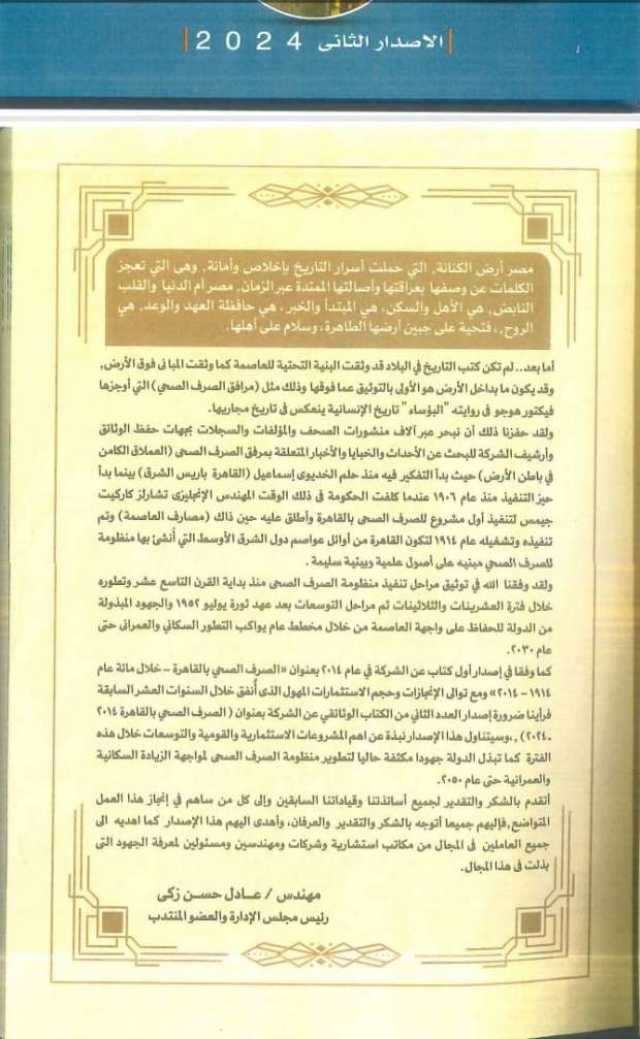 الاصدار الثانى 2024
مصر أرض الكنانة, التي حملت أسرار التاريخ بإخلاص وأمانة, وهى التي تعجز
الكلمات عن وصفها بعراقتها وأصالتها الممتدة عبر الزمان, مصر أم الدنيا والقلب
النابض, هي الأهل والسكن, هي المبتدأ والخبر, هي حافظة العهد والوعد, هي
الروح,, فتحية على جبين أرضها الطاهرة, وسلام على أهلها.
أما بعد.. لم تكن كتب التاريخ في البلاد قد وثقت البنية التحتية للعاصمة كما وثقت المبانى فوق الأرض,
وقد يكون ما بداخل الأرض هو الأولى بالتوثيق عما فوقها وذلك مثل (مرافق الصرف الصحي) التي أوجزها
فيكتور هوجو فى روايته "البؤساء" تاريخ الإنسانية ينعكس فى تاريخ مجاريها.
ولقد حفزنا ذلك أن نبحر عبر آلاف منشورات الصحف والمؤلفات والسجلات بجهات حفظ الوثائق
وأرشيف الشركة للبحث عن الأحداث والخبايا والأخبار المتعلقة بمرفق الصرف الصحى (العملاق الكامن
في باطن الأرض) حيث بدأ التفكير فيه منذ حلم الخديوى إسماعيل (القاهرة باريس الشرق) بينما بدأ
حيز التنفيذ منذ عام ١٩٠٦ عندما كلفت الحكومة فى ذلك الوقت المهندس الإنجليزى تشارلز كاركيت
جيمس لتنفيذ أول مشروع للصرف الصحى بالقاهرة وأطلق عليه حين ذاك (مصارف العاصمة) وتم
تنفيذه وتشغيله عام ١٩١٤ لتكون القاهرة من أوائل عواصم دول الشرق الأوسط التي أنشئ بها منظومة
للصرف الصحي مبنيه على أصول علمية وبيئية سليمة .
ولقد وفقنا الله في توثيق مراحل تنفيذ منظومة الصرف الصحى منذ بداية القرن التاسع عشر وتطوره
خلال فترة العشرينات والثلاثينات ثم مراحل التوسعات بعد عهد ثورة يوليو ١٩٥٢ والجهود المبذولة
من الدولة للحفاظ على واجهة العاصمة من خلال مخطط عام يواكب التطور السكاني والعمرانى حتى
عام ٢٠٣٠.
كما وفقنا فى إصدار أول كتاب عن الشركة في عام ٢٠١٤ بعنوان «الصرف الصحي بالقاهرة - خلال مائة عام
١٩١٤ - ٢٠١٤» ومع توالى الإنجازات وحجم الاستثمارات المهول الذى أُنفق خلال السنوات العشر السابقة
فرأينا ضرورة إصدار العدد الثاني من الكتاب الوثائقي عن الشركة بعنوان ( الصرف الصحي بالقاهرة ٢٠١٤
-٢٠٢٤) ,,وسيتناول هذا الإصدار نبذة عن اهم المشروعات الاستثمارية والقومية والتوسعات خلال هذه
الفترة كما تبذل الدولة جهودا مكثفة حاليا لتطوير منظومة الصرف الصحى لمواجهة الزيادة السكانية
والعمرانية حتى عام ٢٠٥٠.
أتقدم بالشكر والتقدير لجميع أساتذتنا وقياداتنا السابقين وإلى كل من ساهم في إنجاز هذا العمل
المتواضع,فإليهم جميعا أتوجه بالشكر والتقدير والعرفان, وأهدى اليهم هذا الإصدار كما اهديه الى
جميع العاملين فى المجال من مكاتب استشارية وشركات ومهندسين ومسئولين لمعرفة الجهود التى
بذلت فى هذا المجال.
مهندس / عادل حسن زكى
رئيس مجلس الإدارة والعضو المنتدب